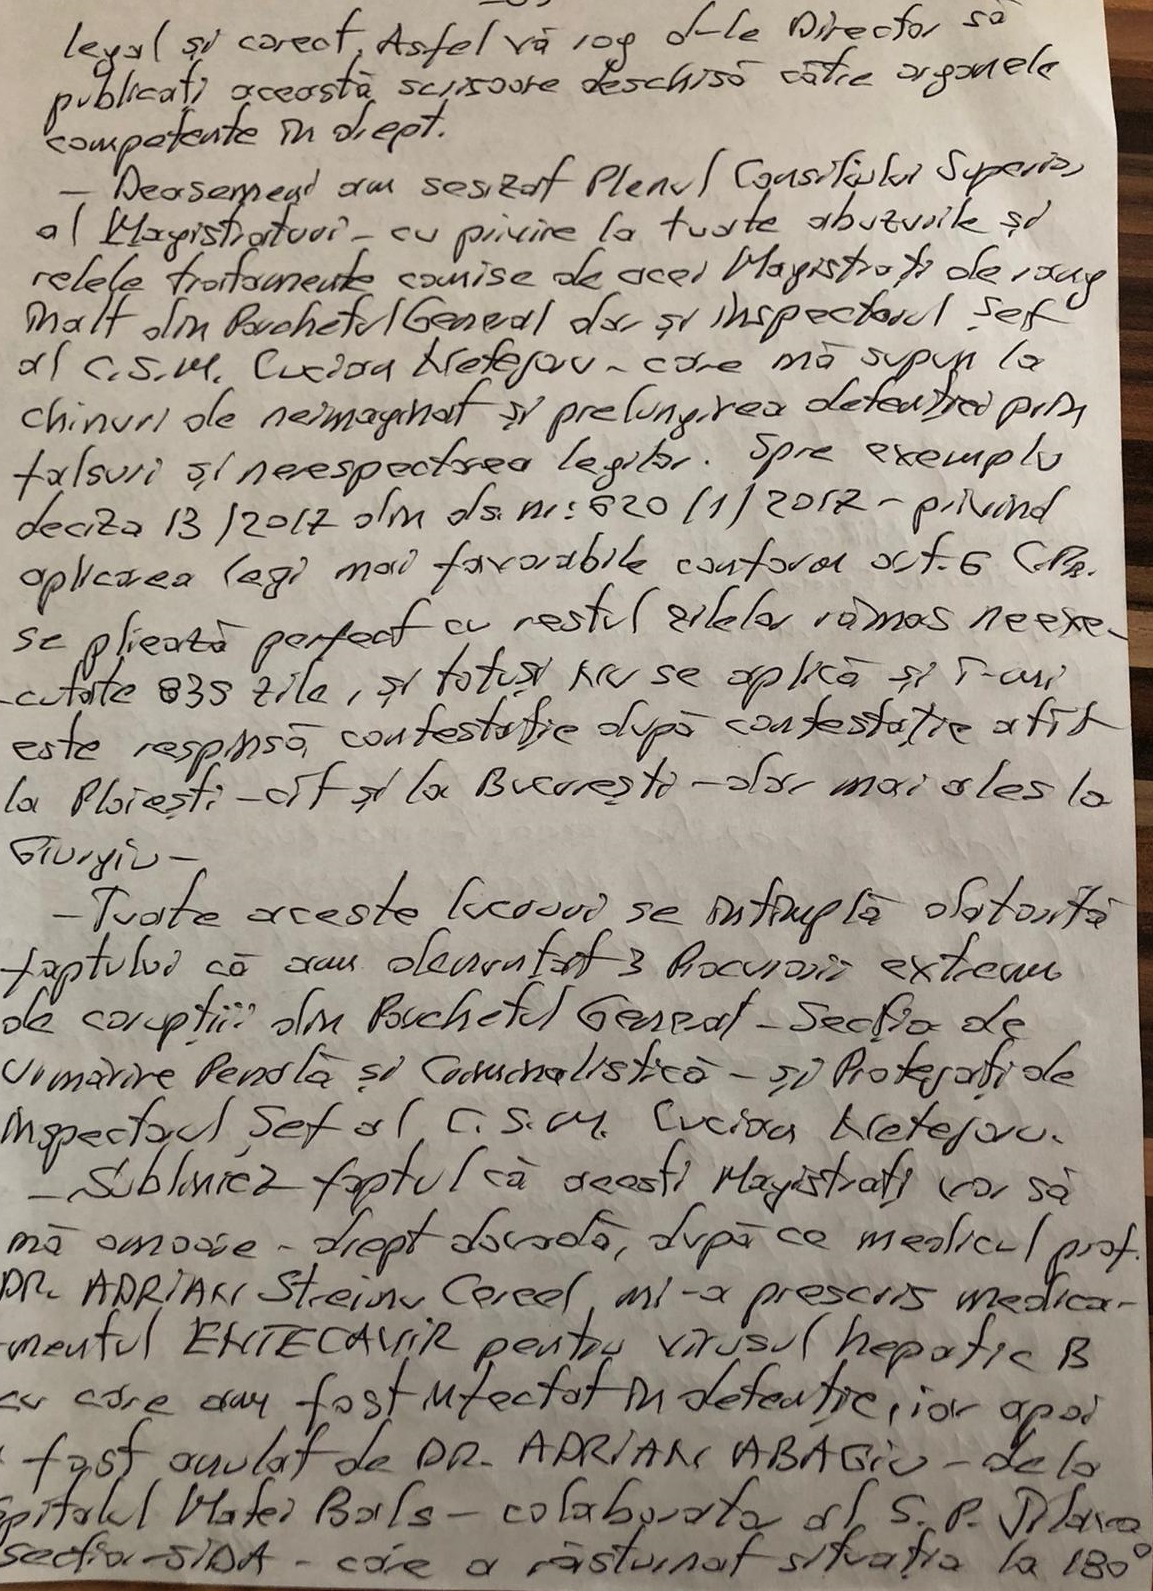 legal și corect, Asfel vă rog d-le Director să
publicați această scrisoare deschisă către organele
competente în drept.
– Deasemeni am sesizat Plenul Consiliului Superior
al Magistraturi – cu privire la tuate abuzurile și
relele tratamente comise de acei Magistrați de rang
înalt din Parchetul General dar și inspectorul Șef
al C.S.M. Lucian Netejoru – care mă supun la
chinuri de neimaginat și prelungirea detenției prin
falsuri și nerespectarea legilor. Spre exemplu
deciza 13/2017 din ds. nr: 620/1/2017 – privind
aplicarea legi mai favorabile conform art. 6 C.Pn.
se pliează perfect cu restul zilelor rămas neexe-
-cutate 835 zile, și totuși nu se aplică și î-mi
este respinsă, contestație după contestație atît
la Ploiești – cît și la București – dar mai ales la
Giurgiu –
– Tuate aceste lucruri se întîmplă datorită
faptului că am denunțat 3 Procurorii extrem
de corupții din Parchetul General – Secția de
Urmărire Penală și Criminalistică – și Protejați de
Inspectorul Șef al C.S.M. Lucian Netejoru.
– Subliniez faptul că acești Magistrați vor să
mă omoare – drept dovadă, după ce medicul prof.
DR. ADRIAN Streinu Cercel, mi-a prescris medica-
-mentul ENTECAVIR pentru virusul hepatic B
cu care am fost nfectat în detenție, iar apoi
fost anulat de DR. ADRIAN ABAGIU – de la
spitalul Matei Bals – colaborator al S.P. Jilava
secția SIDA – care a răsturnat situația la 180°